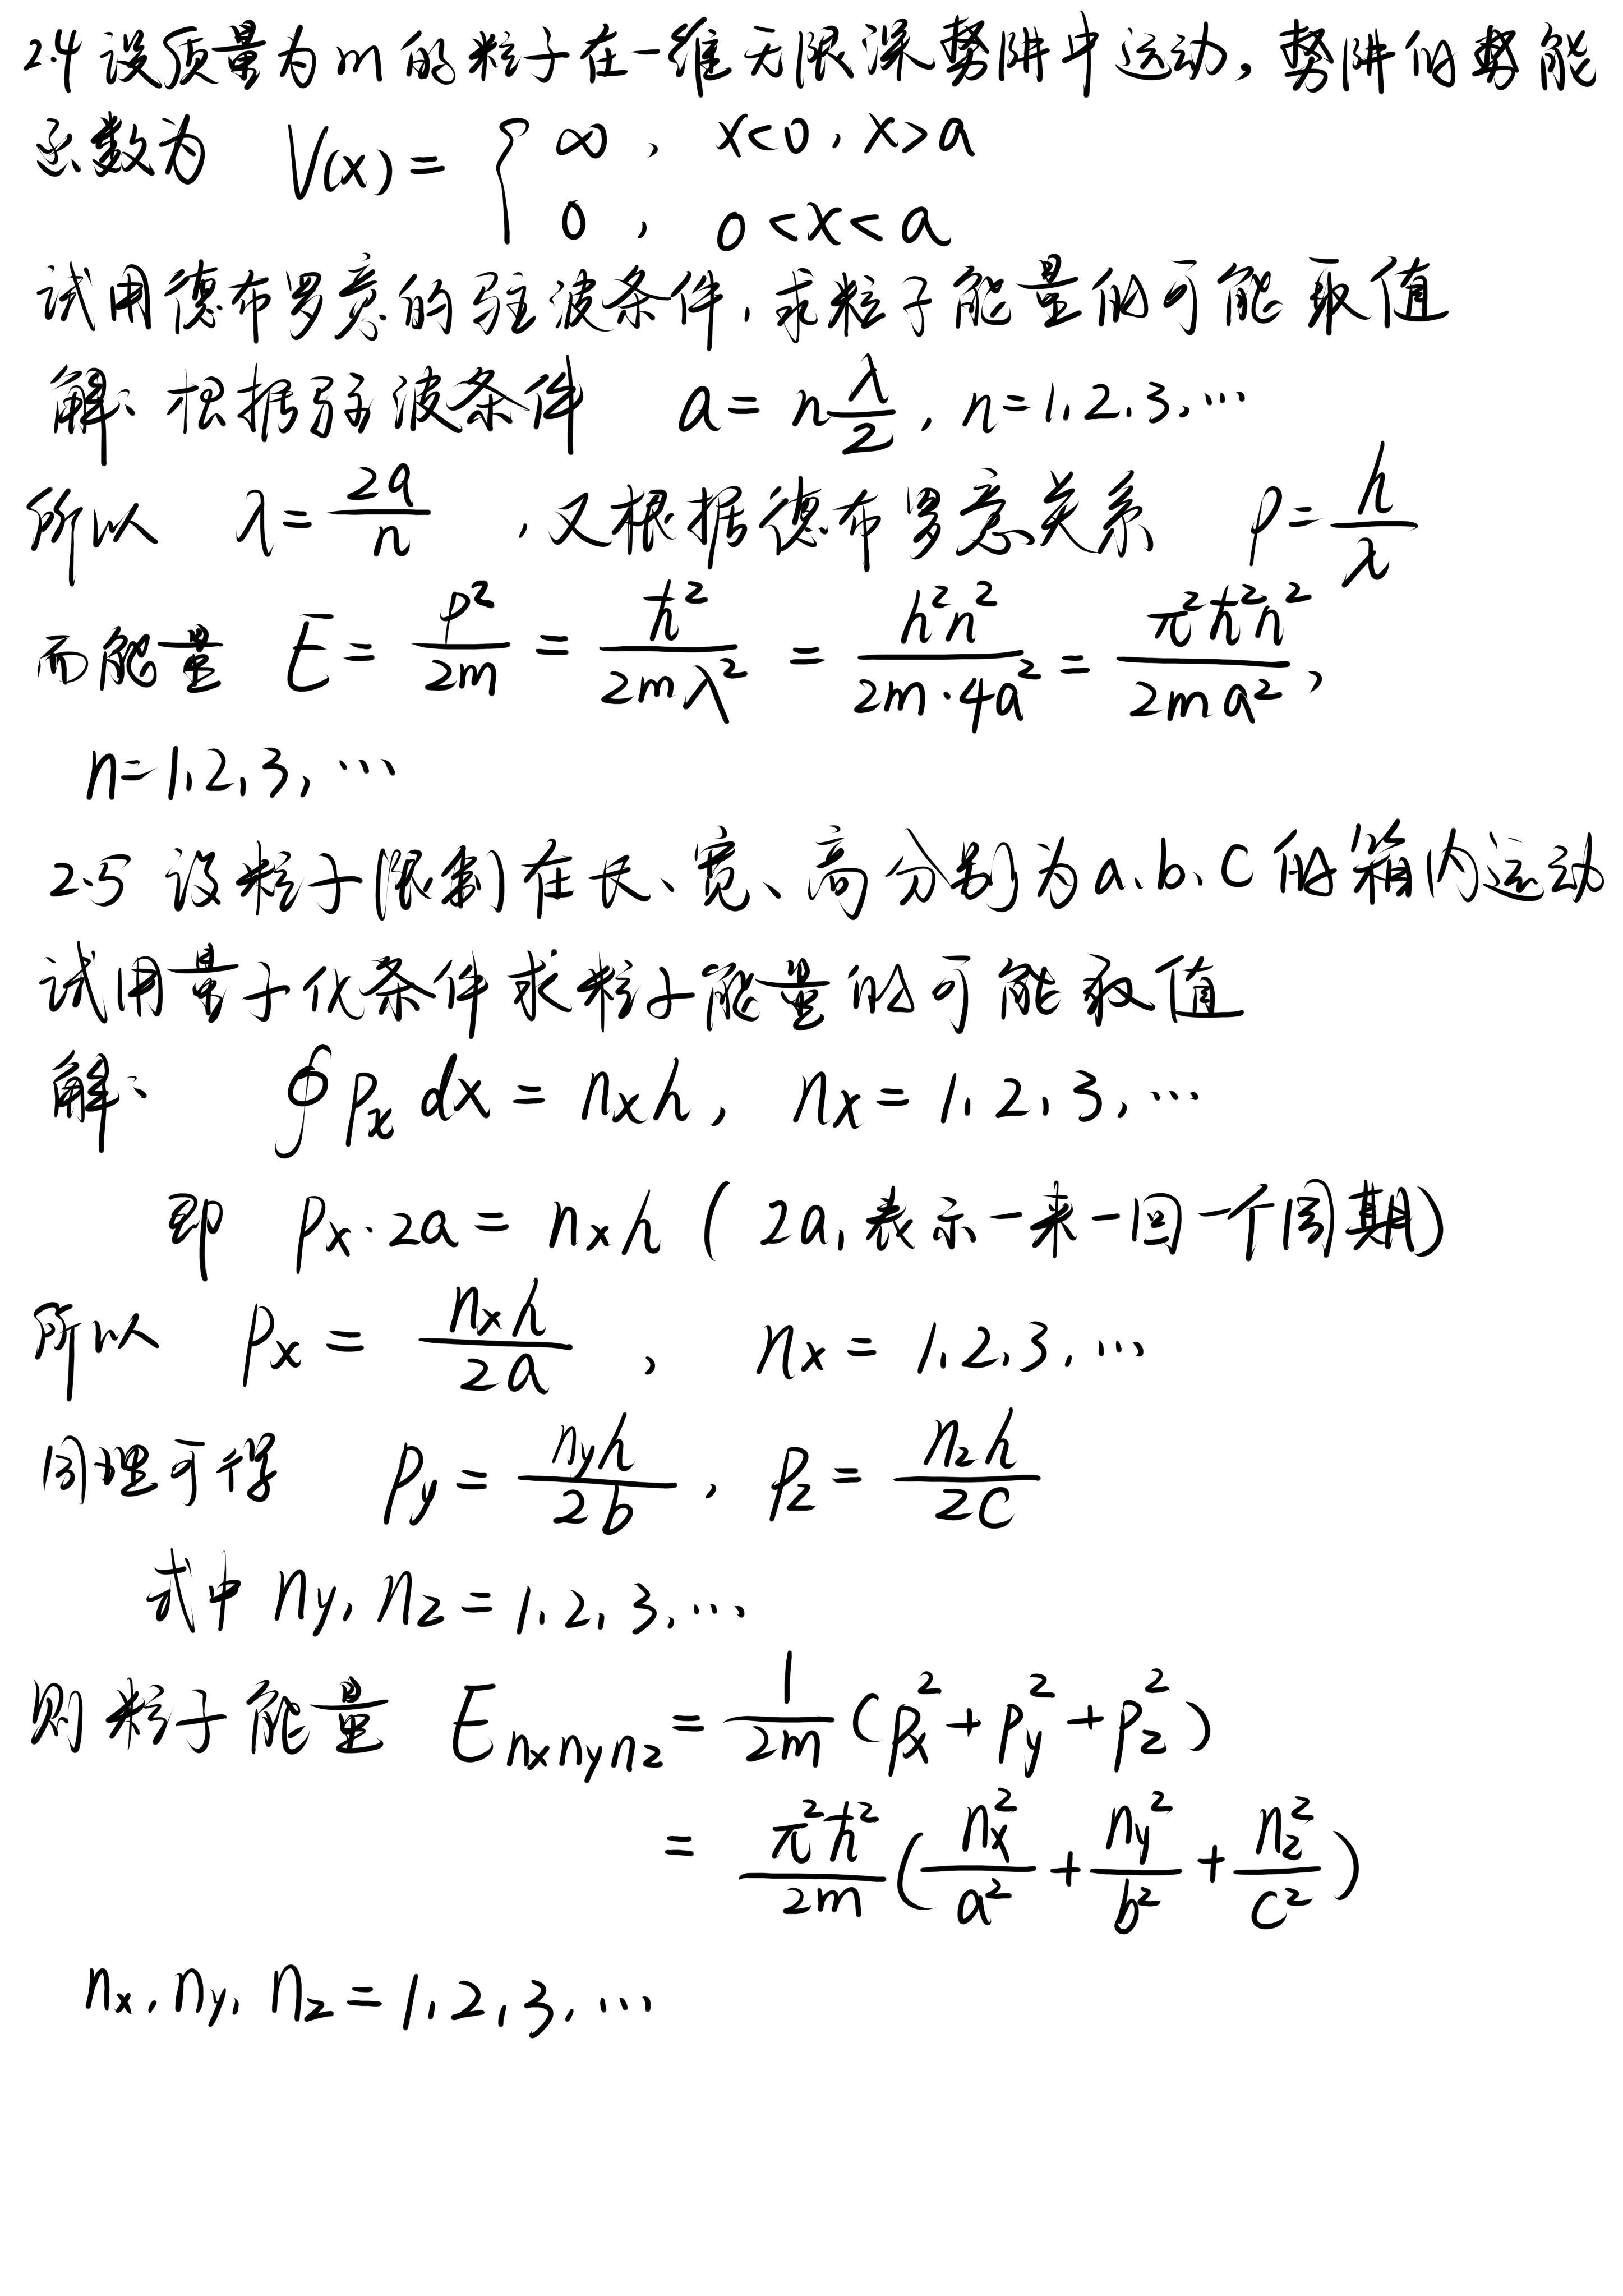 2.4 设质量为m的粒子在一维无限深势阱中运动,势阱的势能
函数为 V(x) = { ∞, x<0, x>a
0, 0<x<a
试用德布罗意的驻波条件,求粒子能量的可能取值
解: 根据驻波条件 a = n λ/2, n=1,2,3,…
所以 λ = 2a/n ,又根据德布罗意关系 p = h/λ
而能量 E = p²/2m = ħ²/2mλ² = h²n²/2m·4a² = π²ħ²n²/2ma²,
n=1,2,3,…
2.5 设粒子限制在长、宽、高分别为a、b、c的箱内运动
试用量子化条件求粒子能量的可能取值
解: ∮ pₓ dx = nₓh, nₓ = 1,2,3,…
即 pₓ·2a = nₓh ( 2a,表示一来一回一个周期)
所以 pₓ = nₓh/2a , nₓ = 1,2,3,…
同理可得 p_y = n_y h/2b , p_z = n_z h/2c
式中 n_y, n_z = 1,2,3,…
则粒子能量 E_{nₓn_yn_z} = 1/2m (pₓ² + p_y² + p_z²)
= π²ħ²/2m (nₓ²/a² + n_y²/b² + n_z²/c²)
nₓ, n_y, n_z = 1,2,3,…